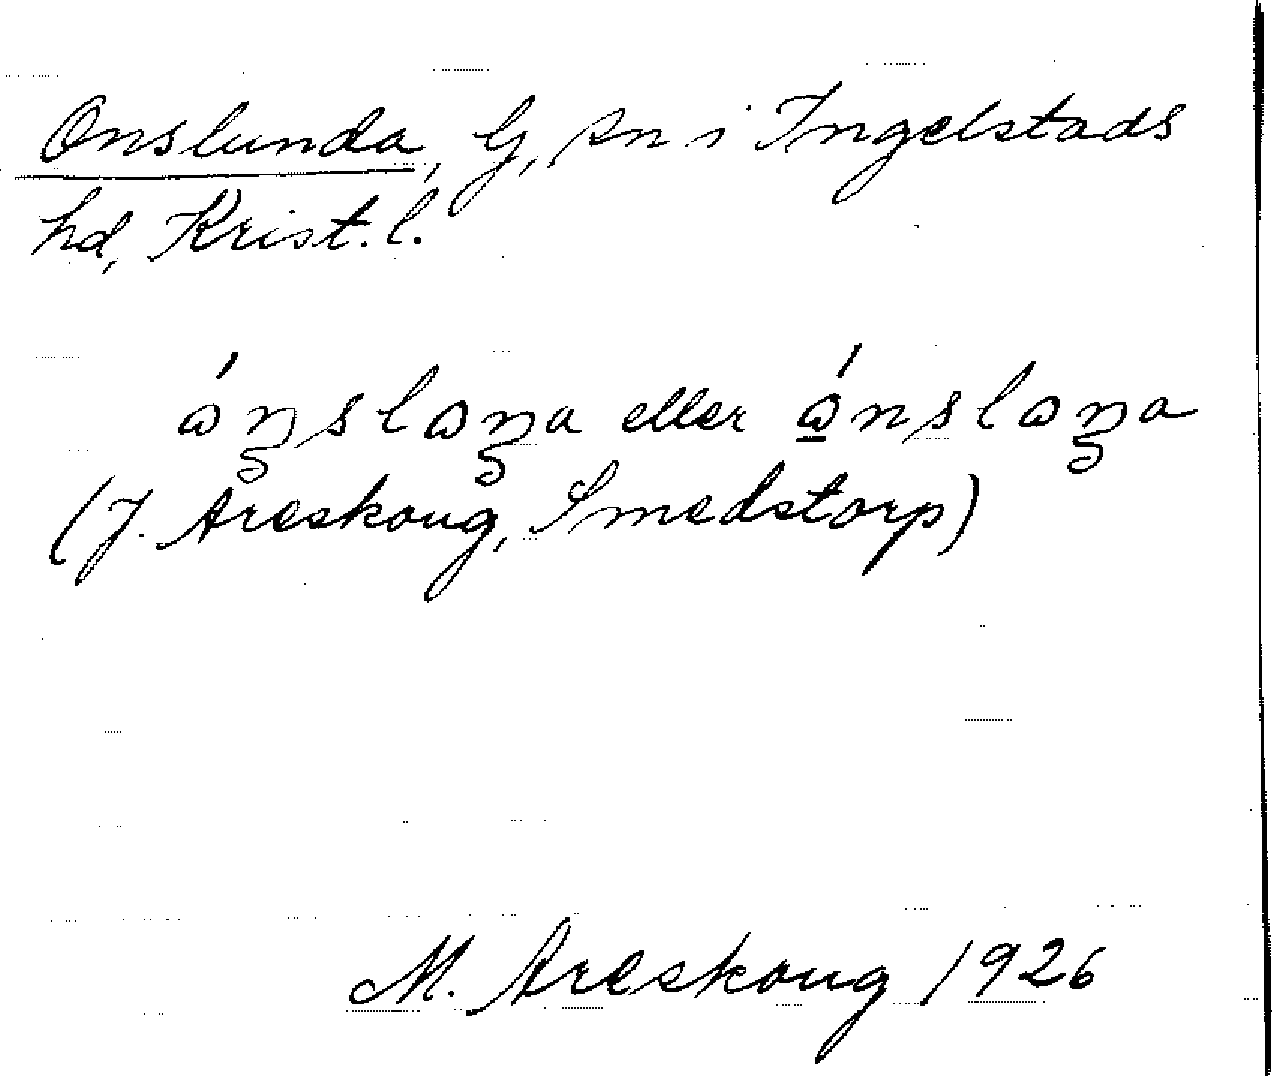 Onslunda, G, sn i Ingelstads
hd, Krist. l.
eller
(J. Areskoug, Smedstorp)
M. Areskoug 1926